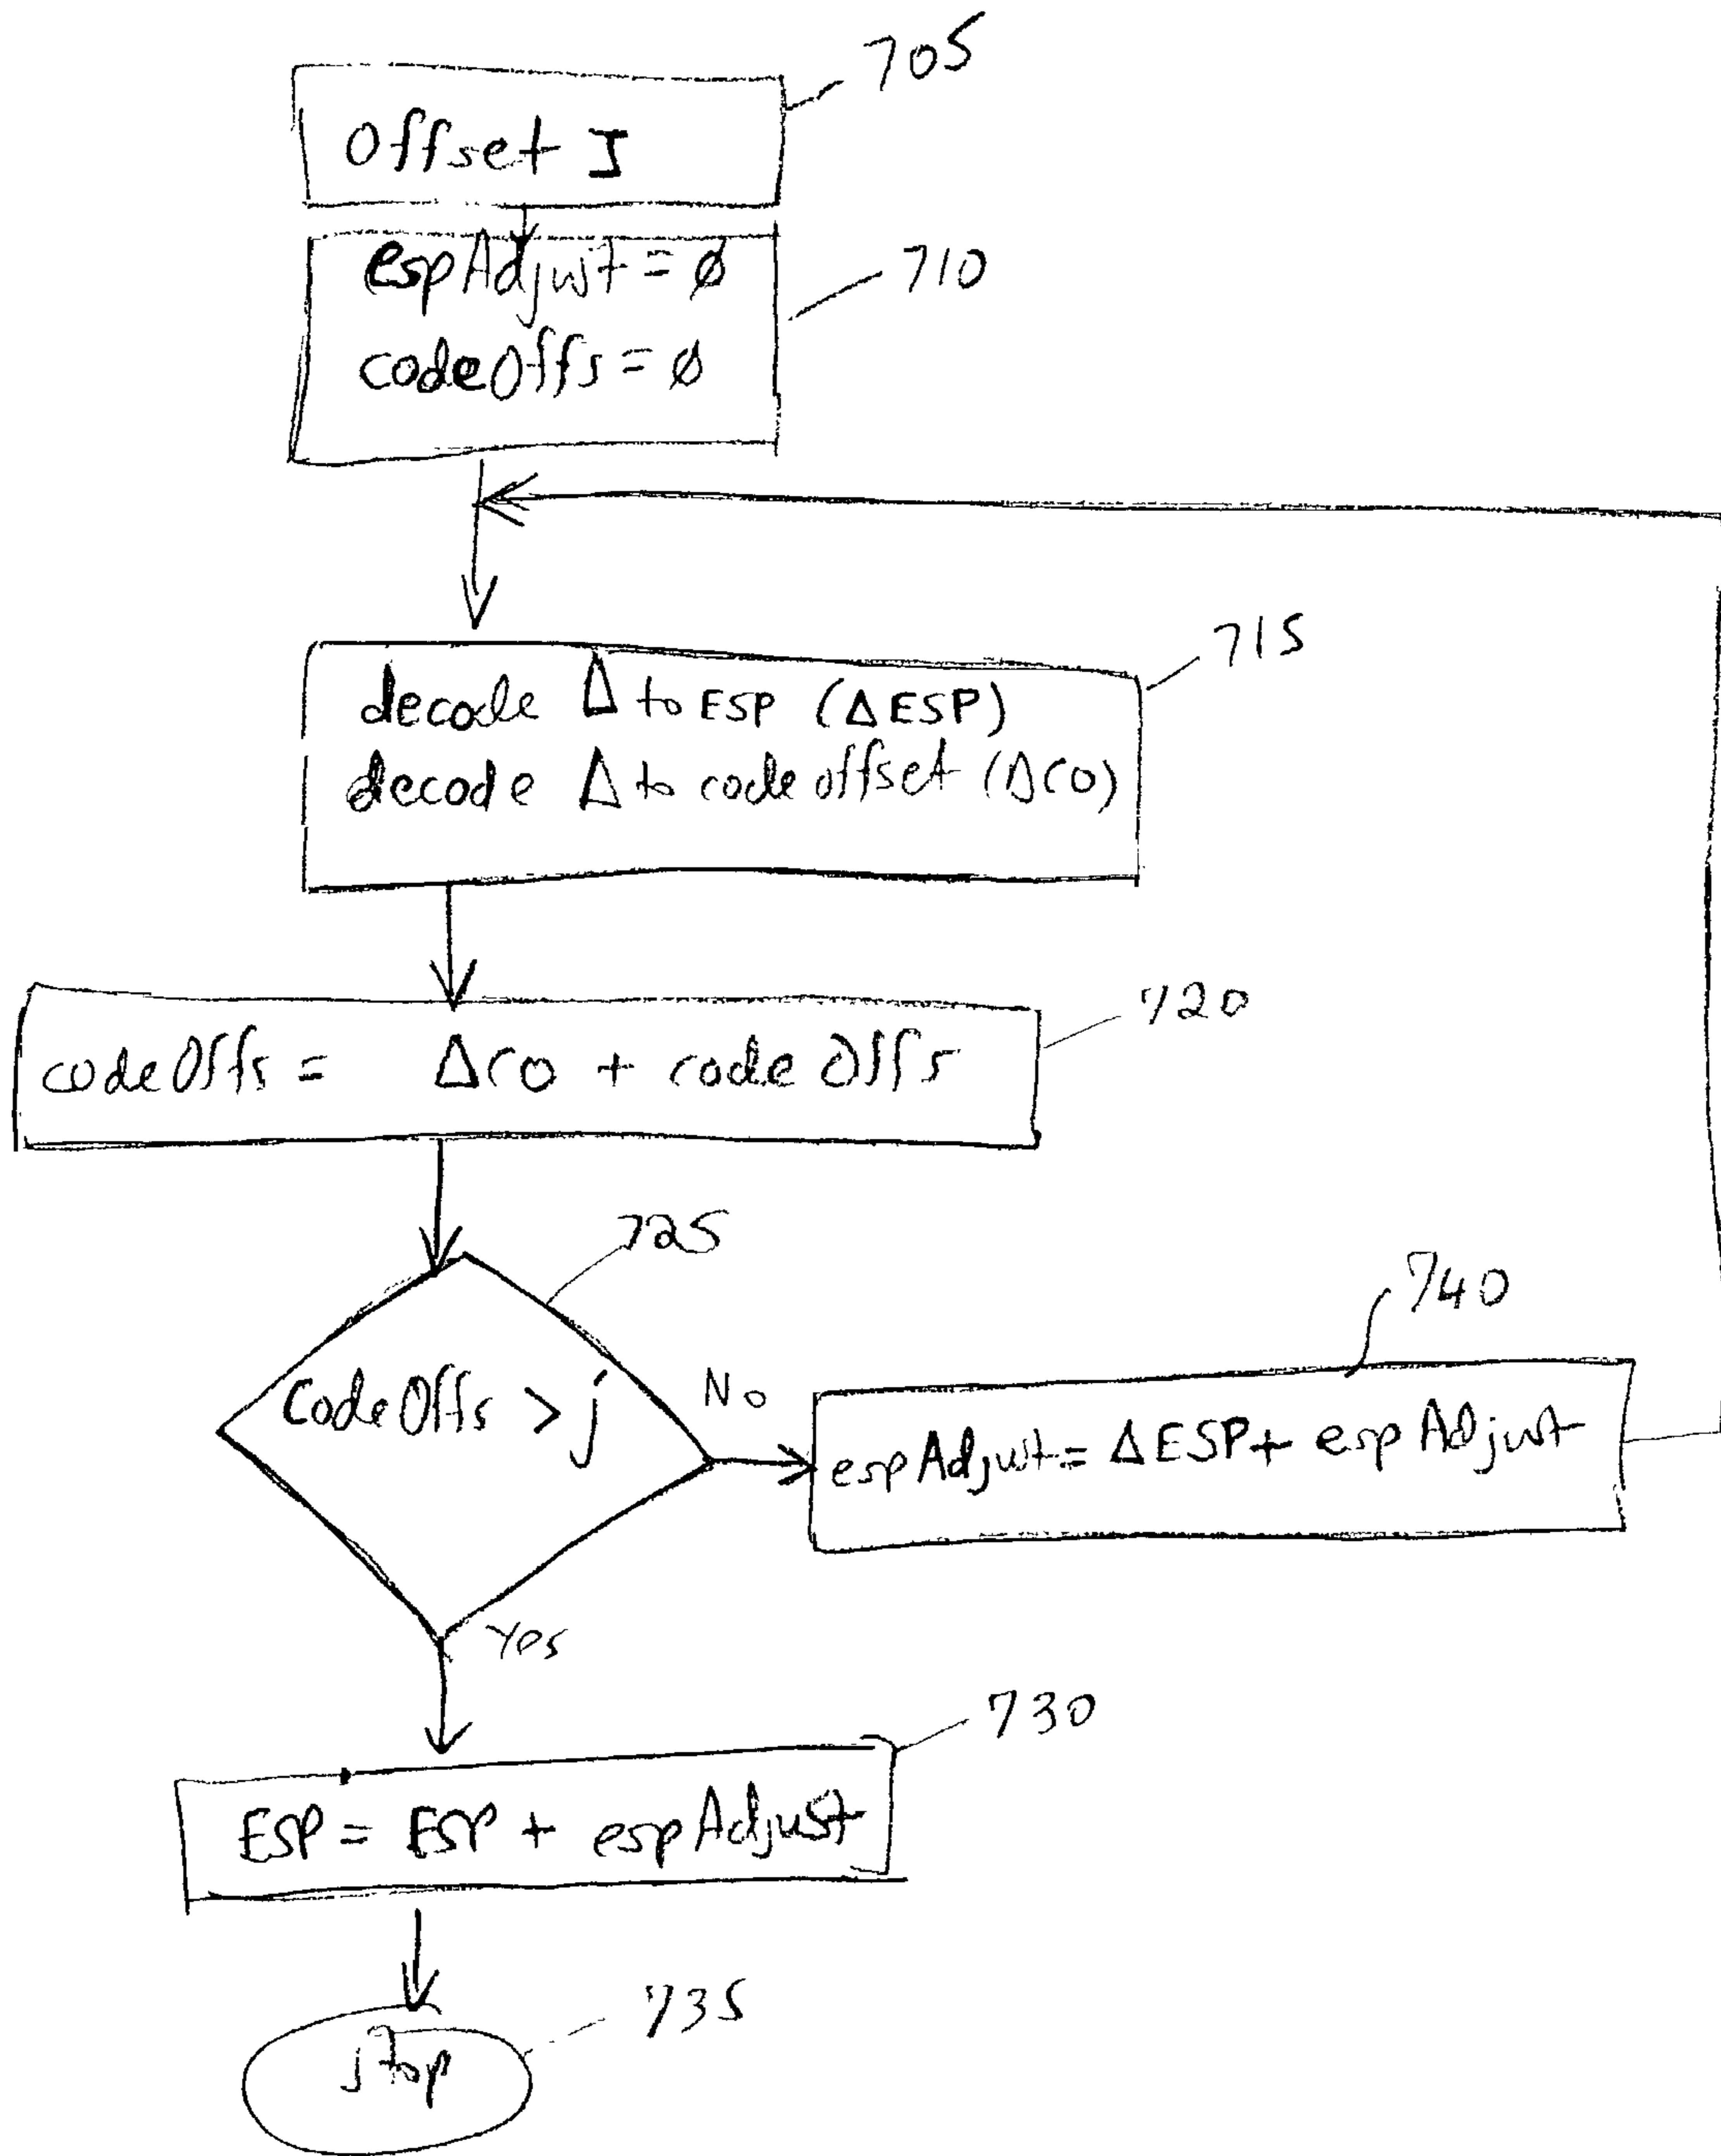 705
Offset J
espAdjust = ∅
710
codeOffs = ∅
715
decode Δ to ESP (ΔESP)
decode Δ to code offset (ΔCO)
720
codeOffs = ΔCO + codeOffs
725
740
CodeOffs > j
No
espAdjust = ΔESP + espAdjust
Yes
730
ESP = ESP + espAdjust
735
stop